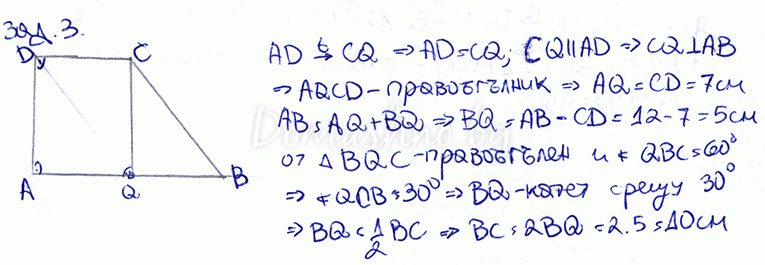 Зад. 3.
D C
A Q B
AD ⇆ CQ ⇒ AD = CQ; CQ∥AD ⇒ CQ⊥AB
⇒ AQCD - правоъгълник ⇒ AQ = CD = 7см
AB = AQ + BQ ⇒ BQ = AB - CD = 12 - 7 = 5см
от △ BQC - правоъгълен и ∢ QBC = 60°
⇒ ∢ QCB = 30° ⇒ BQ - катет срещу 30°
⇒ BQ = 1/2 BC ⇒ BC = 2BQ = 2.5 = 10см
Domashno.bg